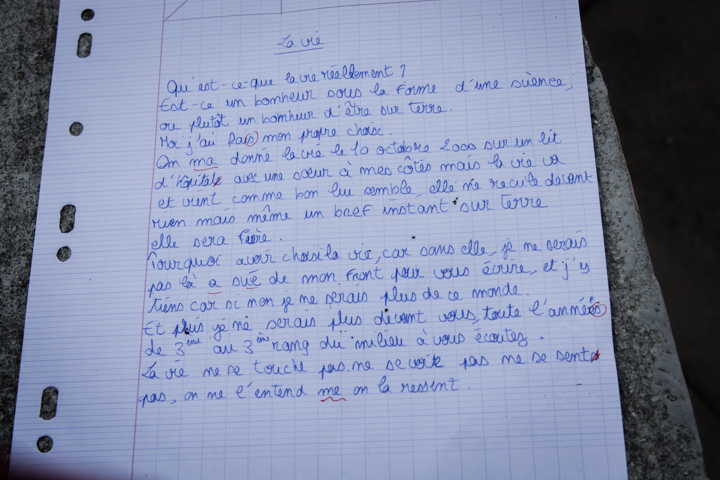 La vie
Qu'est-ce-que la vie réellement ?
Est-ce un bonheur sous la forme d'une science,
ou plutôt un bonheur d'être sur terre.
Moi j'ai fais mon propre choix.
On ma donné la vie le 10 octobre 2000 sur un lit
d'hôpital avec une sœur à mes côtés mais la vie va
et vient comme bon lui semble, elle ne recule devant
rien mais même un bref instant sur terre
elle sera
Pourquoi avoir choisi la vie, car sans elle, je ne serais
pas là a sué de mon front pour vous écrire, et j'y
tiens car si non je ne serais plus de ce monde.
Et puis je ne serais plus devant vous, toute l'années
de 3ème au 3ème rang du milieu à vous écoutez.
La vie ne se touche pas ne se voit pas ne se sent
pas, on ne l'entend me on la ressent.